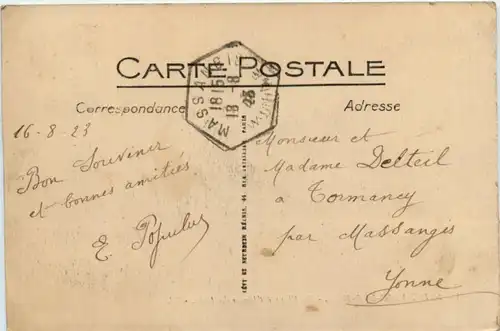 CARTE POSTALE
Correspondance
Adresse
16-8-23
Bon Souvenir
et bonnes amitiés
E. Populus
MASSAN
1815
18-8
23
Monsieur et
Madame Delteil
à Tormancy
par Massangis
Yonne